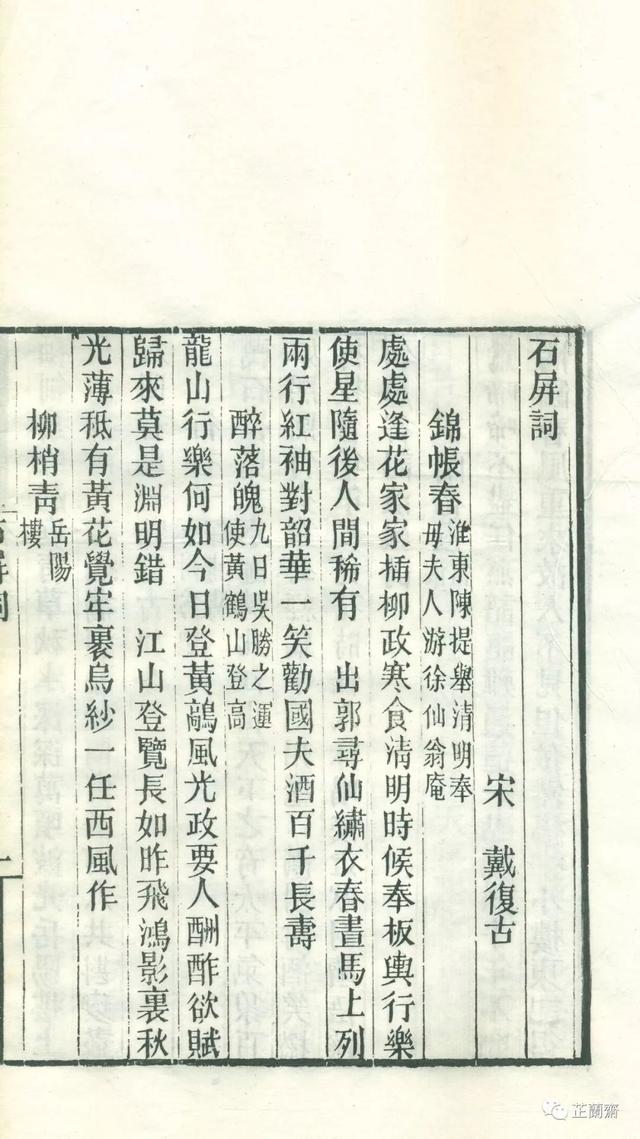 石屏詞
宋　戴復古
錦帳春
淮東陳提舉清明奉
母夫人游徐仙翁庵
處處逢花家家插柳政寒食清明時候奉板輿行樂
使星隨後人間稀有　出郭尋仙繡衣春晝馬上列
兩行紅袖對韶華一笑勸國夫酒百千長壽
醉落魄
九日吳勝之運
使黃鶴山登高
龍山行樂何如今日登黃鶴風光政要人酬酢欲賦
歸來莫是淵明錯　江山登覽長如昨飛鴻影裏秋
光薄秪有黃花覺牢裹烏紗一任西風作
柳梢青
岳陽
樓
芷蘭齋